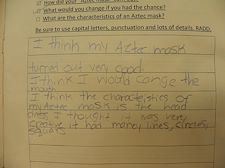 How did your Aztec mask turn out?
What would you change if you had the chance?
What are the characteristics of an Aztec mask?
Be sure to use capital letters, punctuation and lots of details. RADD.
I think my Aztec mask
turned out very good.
I think I would cange the
mouth
I think the characteristics of
my Aztec mask is the head
I thought it was very
creative it had many lines, circles,
squars